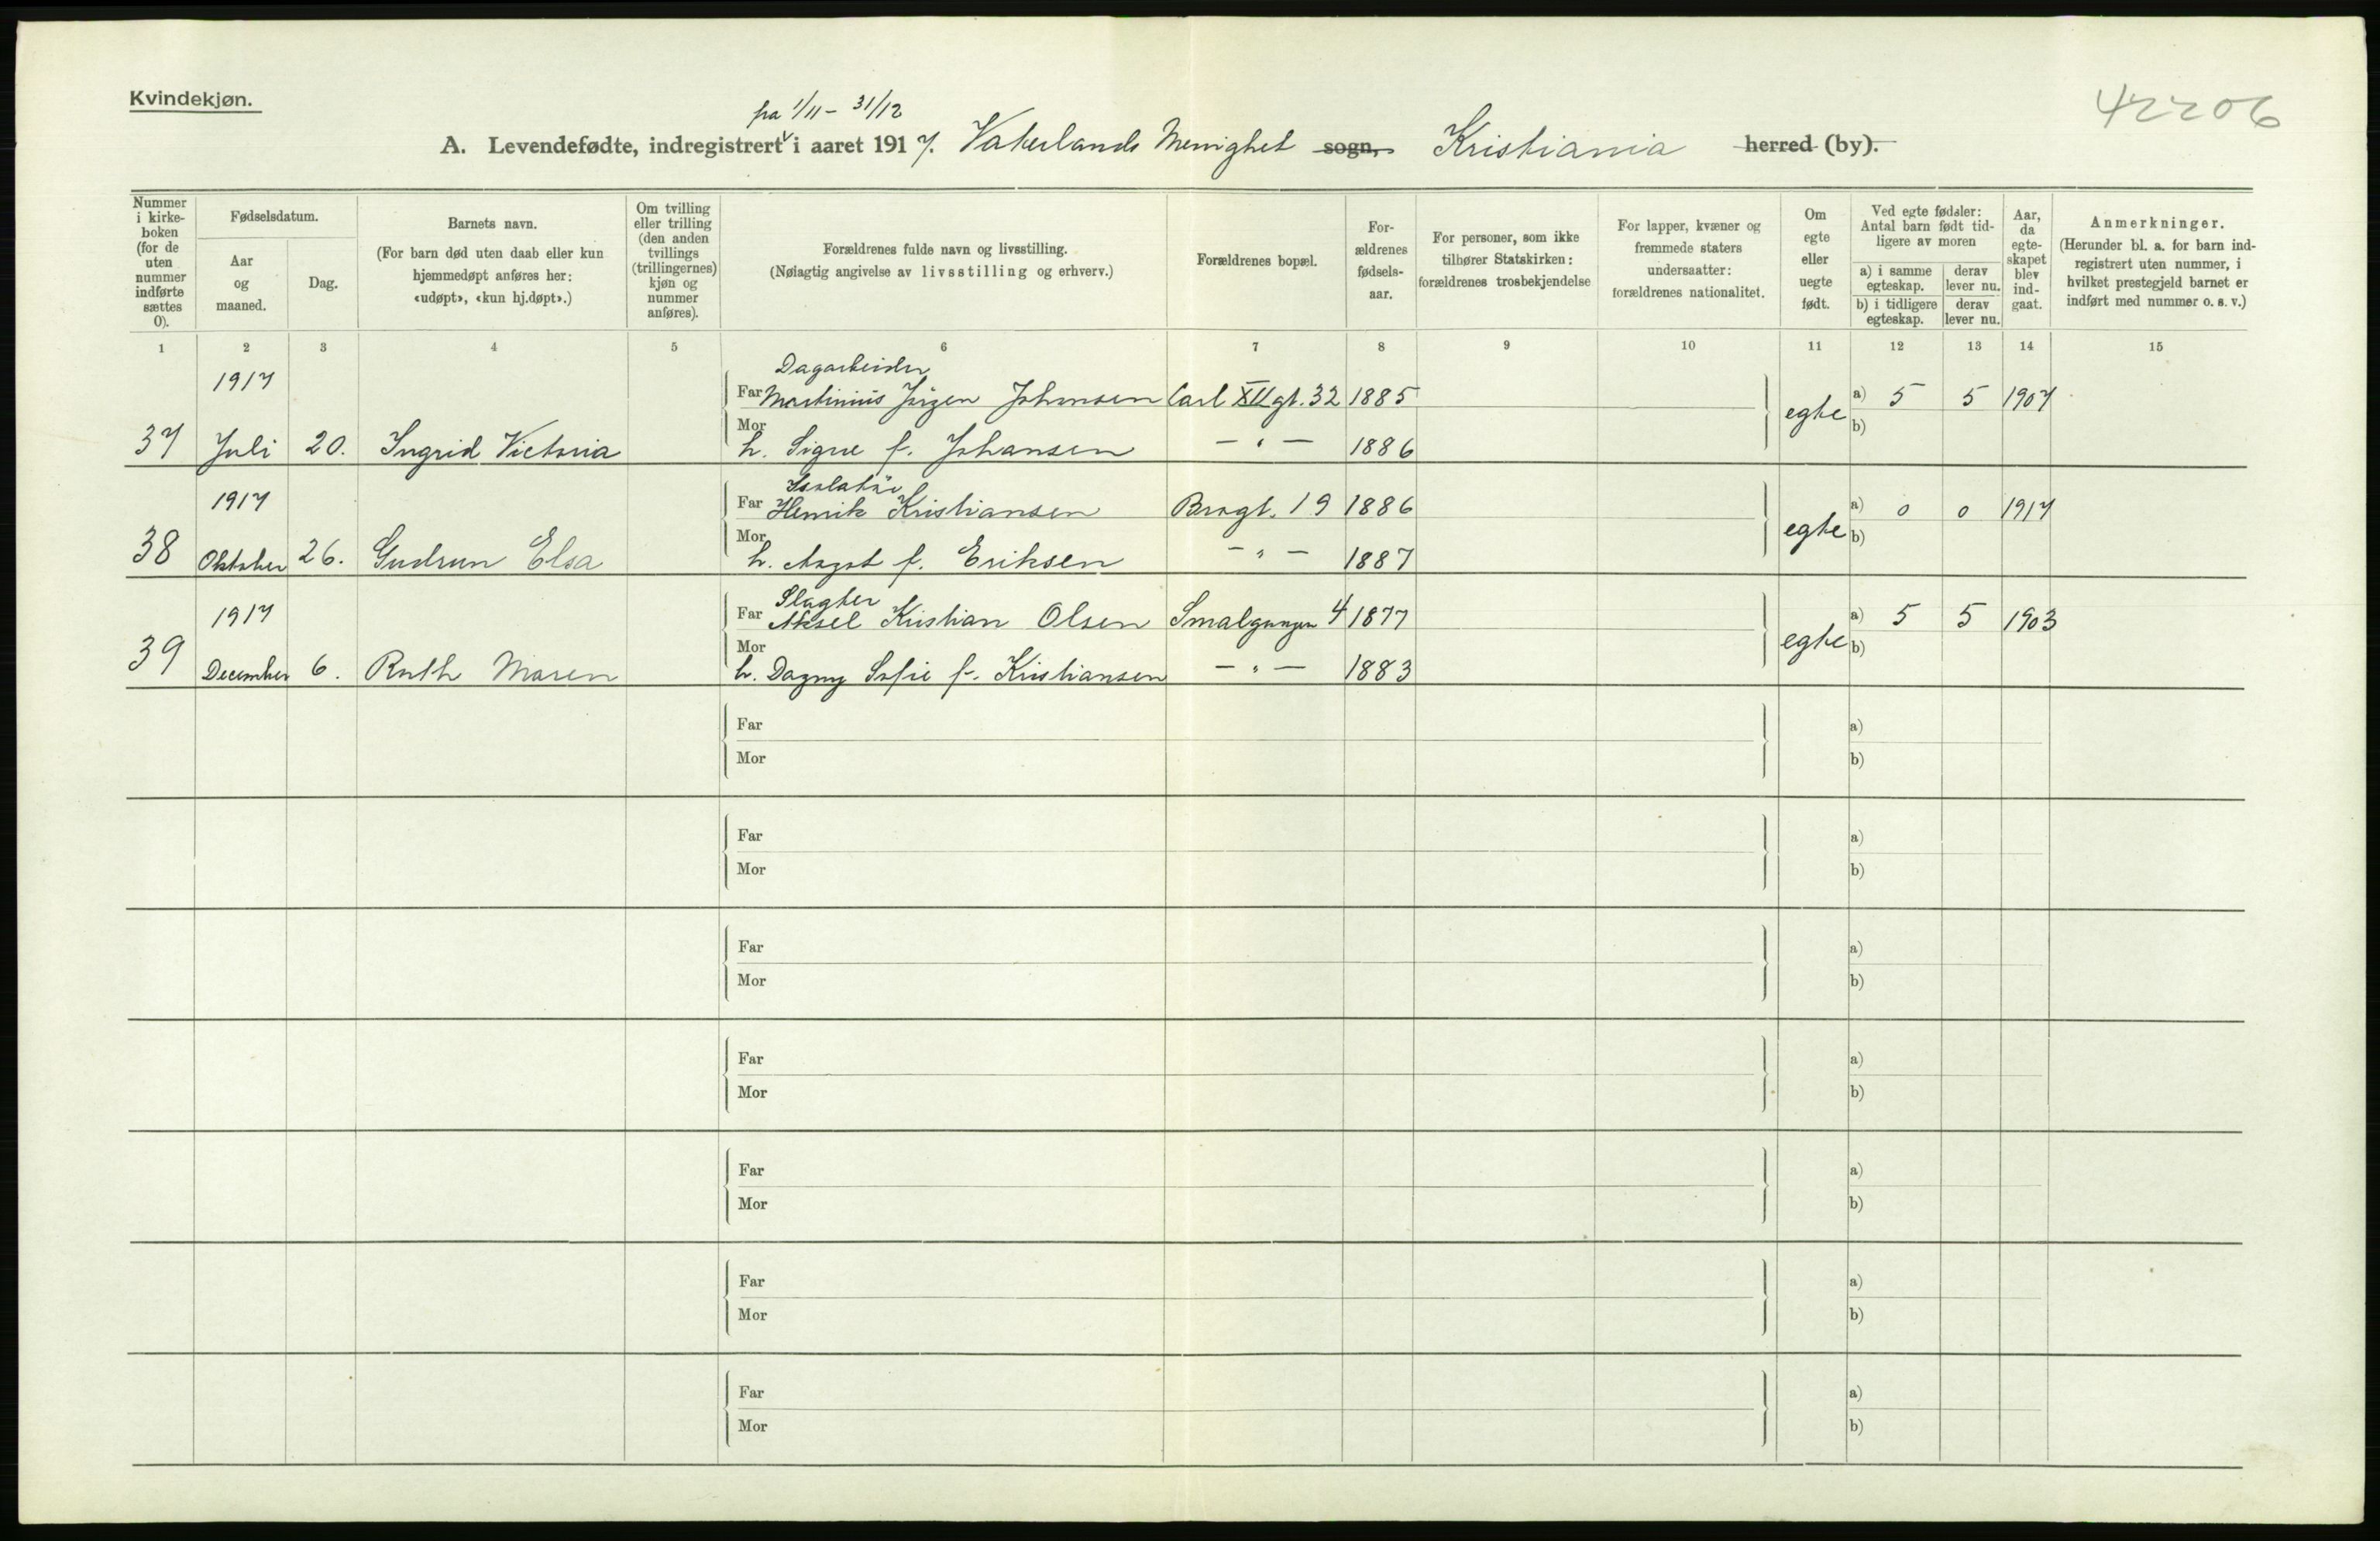 Kvindekjøn.
42206
fra 1/11 - 31/12
A. Levendefødte, indregistrert i aaret 1917. Vaterlands Menighet sogn, Kristiania herred (by).
Nummer i kirkeboken (for de uten nummer indførte sættes 0).
Fødselsdatum.
Aar og maaned.
Dag.
Barnets navn.
(For barn død uten daab eller kun hjemmedøpt anføres her: «udøpt», «kun hj.døpt».)
Om tvilling eller trilling (den anden tvillings (trillingernes) kjøn og nummer anføres).
Forældrenes fulde navn og livsstilling.
(Nøiagtig angivelse av livsstilling og erhverv.)
Forældrenes bopæl.
Forældrenes fødselsaar.
For personer, som ikke tilhører Statskirken: forældrenes trosbekjendelse
For lapper, kvæner og fremmede staters undersaatter: forældrenes nationalitet.
Om egte eller uegte født.
Ved egte fødsler: Antal barn født tidligere av moren
a) i samme egteskap. derav lever nu.
b) i tidligere egteskap. derav lever nu.
Aar, da egteskapet blev indgaat.
Anmerkninger.
(Herunder bl. a. for barn indregistrert uten nummer, i hvilket prestegjeld barnet er indført med nummer o. s. v.)
1 2 3 4 5 6 7 8 9 10 11 12 13 14 15
1917 Dagarbeider
Far Martinius Jørgen Johansen Carl XII gt. 32 1885 egte a) 5 5 1907
37 Juli 20. Ingrid Victoria Mor h. Signe f. Johansen - " - 1886 b)
1917 Isolatør
Far Henrik Kristiansen Brogt. 19 1886 egte a) 0 0 1917
38 Oktober 26. Gudrun Elsa Mor h. Aagot f. Eriksen - " - 1887 b)
1917 Slagter
Far Aksel Kristian Olsen Smalgangen 4 1877 egte a) 5 5 1903
39 December 6. Ruth Maren Mor h. Dagny Sofie f. Kristiansen - " - 1883 b)
Far a)
Mor b)
Far a)
Mor b)
Far a)
Mor b)
Far a)
Mor b)
Far a)
Mor b)
Far a)
Mor b)
Far a)
Mor b)